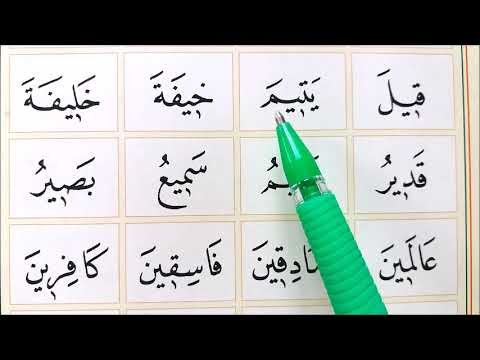 قٖيلَ يَتٖيمَ خٖيفَةَ خَلٖيفَةَ
قَدٖيرُ سَمٖيعُ بَصٖيرُ
عَالَمٖينَ فَاسِقٖينَ كَافِرٖينَ